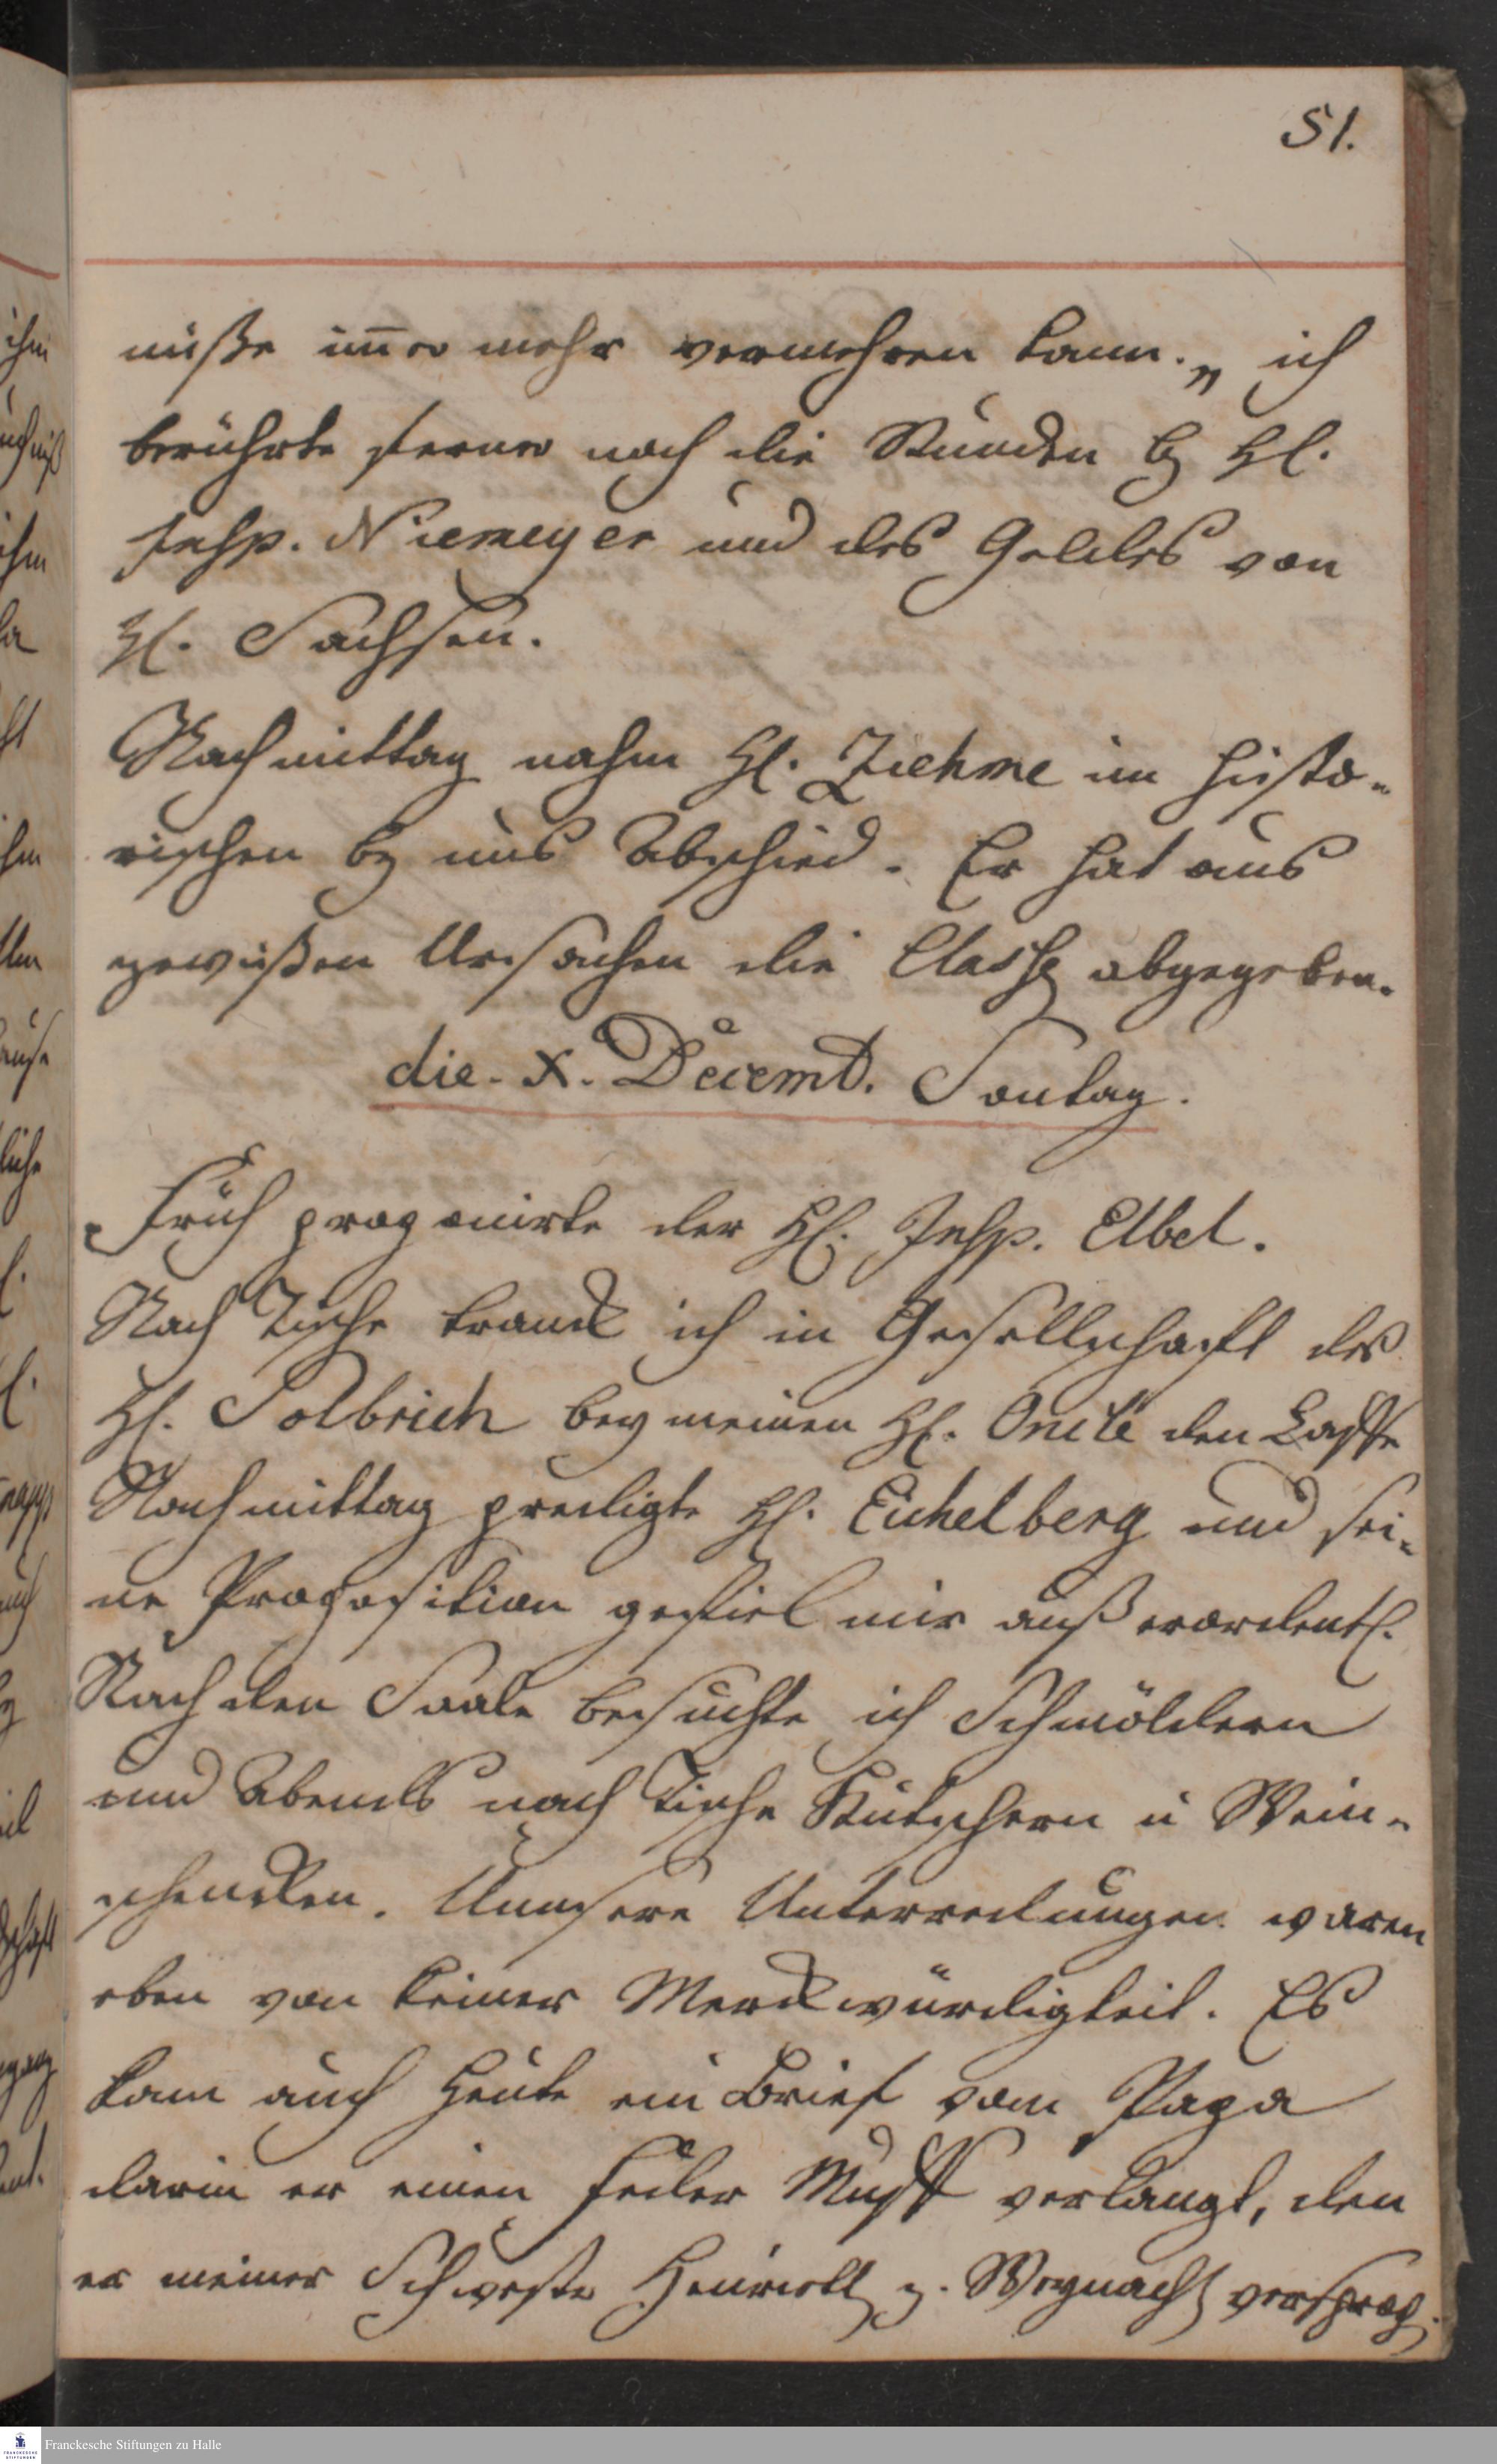 51.
niße im̄er mehr vermehren kann. „ ich
berührte ferner noch die Stunden by H.
Insp. Niemeyer und des Geldes von
H. Sachsen.
Nachmittag nahm H. Ziehme im histo-
rischen by uns Abschied. Er hat aus
gewißen Ursachen die Classe abgegeben.
die. X. Decemb. Sontag.
Früh proponirte der H. Insp. Elbel.
Nach Tische tranck ich in Gesellschafft des
H. Solbrich bey meinen H. Oncle den Caffe
Nachmittag predigte H. Eichelberg und sei-
ne Proposition gefiel mir außerordentl.
Nach den Saale besuchte ich Schmöldern
und Abends nach Tische Kutschern u Wein-
schencken. Unsere Unterredungen waren
eben von keiner Merckwürdigkeit. Es
kam auch Heute ein Brief vom Papa
darin er einen Feder Muff verlangt, den
er meiner Schwester Henriette z. Weynacht versproch.
Franckesche Stiftungen zu Halle